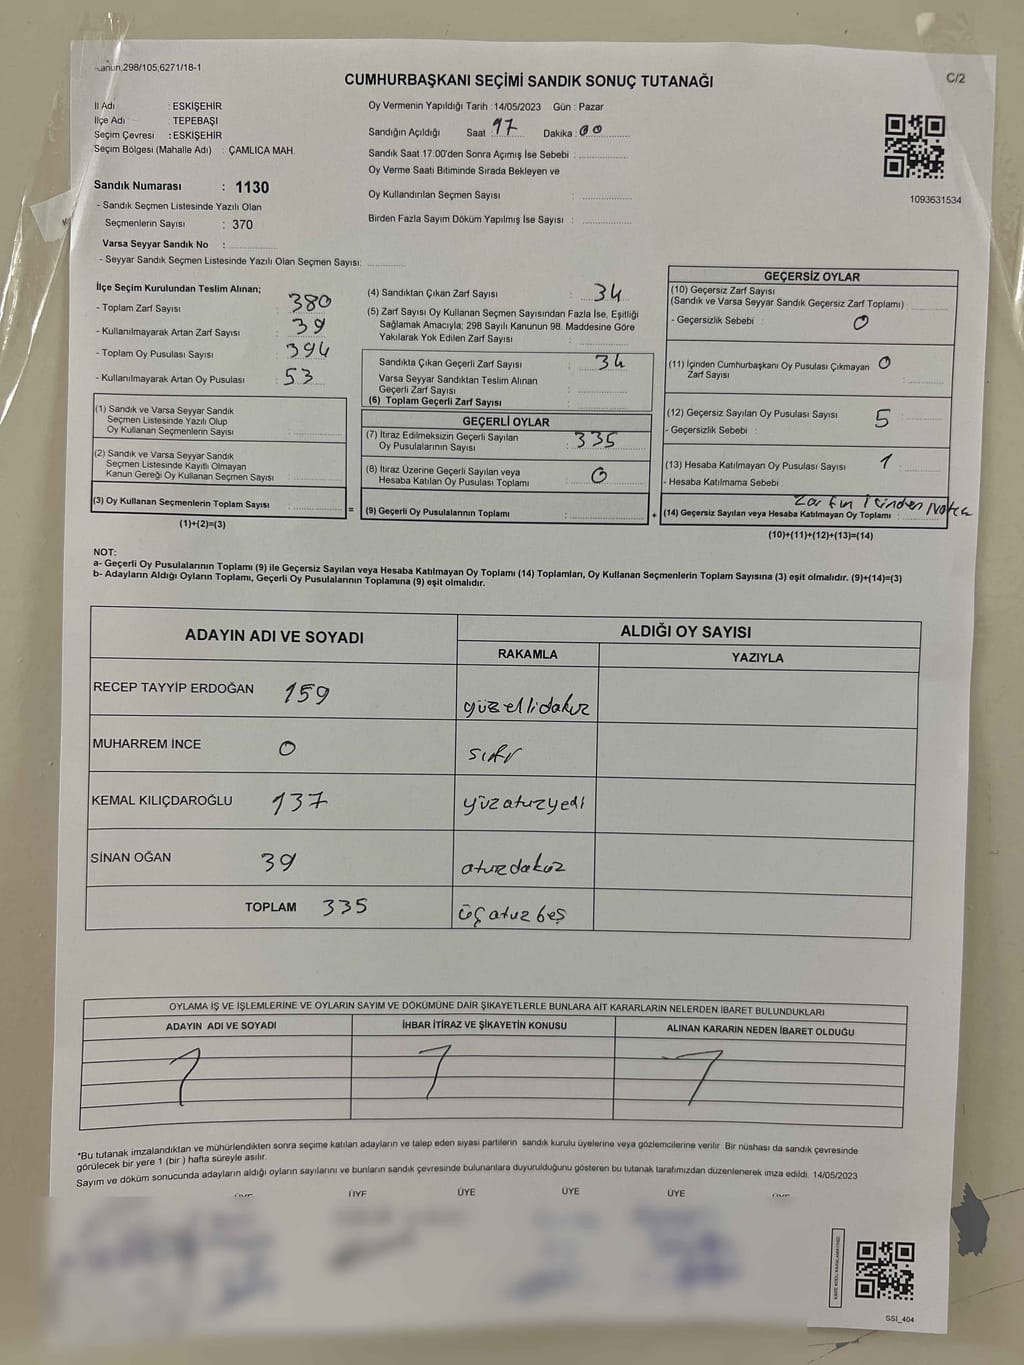 Kanun,298/105,6271/18-1
CUMHURBAŞKANI SEÇİMİ SANDIK SONUÇ TUTANAĞI
C/2
İl Adı : ESKİŞEHİR
İlçe Adı : TEPEBAŞI
Seçim Çevresi : ESKİŞEHİR
Seçim Bölgesi (Mahalle Adı) : ÇAMLICA MAH.
Sandık Numarası : 1130
- Sandık Seçmen Listesinde Yazılı Olan
Seçmenlerin Sayısı : 370
Varsa Seyyar Sandık No :
- Seyyar Sandık Seçmen Listesinde Yazılı Olan Seçmen Sayısı:
Oy Vermenin Yapıldığı Tarih :14/05/2023 Gün : Pazar
Sandığın Açıldığı Saat : 17 Dakika : 00
Sandık Saat 17.00'den Sonra Açımış İse Sebebi :
Oy Verme Saati Bitiminde Sırada Bekleyen ve
Oy Kullandırılan Seçmen Sayısı :
Birden Fazla Sayım Döküm Yapılmış İse Sayısı :
1093631534
İlçe Seçim Kurulundan Teslim Alınan;
- Toplam Zarf Sayısı : 380
- Kullanılmayarak Artan Zarf Sayısı : 39
- Toplam Oy Pusulası Sayısı : 394
- Kullanılmayarak Artan Oy Pusulası : 53
(1) Sandık ve Varsa Seyyar Sandık
Seçmen Listesinde Yazılı Olup
Oy Kullanan Seçmenlerin Sayısı :
(2) Sandık ve Varsa Seyyar Sandık
Seçmen Listesinde Kayıtlı Olmayan
Kanun Gereği Oy Kullanan Seçmen Sayısı :
(3) Oy Kullanan Seçmenlerin Toplam Sayısı :
(1)+(2)=(3)
(4) Sandıktan Çıkan Zarf Sayısı : 34
(5) Zarf Sayısı Oy Kullanan Seçmen Sayısından Fazla İse, Eşitliği
Sağlamak Amacıyla; 298 Sayılı Kanunun 98. Maddesine Göre
Yakılarak Yok Edilen Zarf Sayısı :
Sandıkta Çıkan Geçerli Zarf Sayısı : 34
Varsa Seyyar Sandıktan Teslim Alınan
Geçerli Zarf Sayısı :
(6) Toplam Geçerli Zarf Sayısı :
GEÇERLİ OYLAR
(7) İtiraz Edilmeksizin Geçerli Sayılan
Oy Pusulalarının Sayısı : 335
(8) İtiraz Üzerine Geçerli Sayılan veya
Hesaba Katılan Oy Pusulası Toplamı : 0
= (9) Geçerli Oy Pusulalarının Toplamı : +
GEÇERSİZ OYLAR
(10) Geçersiz Zarf Sayısı
(Sandık ve Varsa Seyyar Sandık Geçersiz Zarf Toplamı) :
- Geçersizlik Sebebi : 0
(11) İçinden Cumhurbaşkanı Oy Pusulası Çıkmayan
Zarf Sayısı : 0
(12) Geçersiz Sayılan Oy Pusulası Sayısı : 5
- Geçersizlik Sebebi :
(13) Hesaba Katılmayan Oy Pusulası Sayısı : 1
- Hesaba Katılmama Sebebi :
Zarfın İçinden
(14) Geçersiz Sayılan veya Hesaba Katılmayan Oy Toplamı :
(10)+(11)+(12)+(13)=(14)
NOT:
a- Geçerli Oy Pusulalarının Toplamı (9) ile Geçersiz Sayılan veya Hesaba Katılmayan Oy Toplamı (14) Toplamları, Oy Kullanan Seçmenlerin Toplam Sayısına (3) eşit olmalıdır. (9)+(14)=(3)
b- Adayların Aldığı Oyların Toplamı, Geçerli Oy Pusulalarının Toplamına (9) eşit olmalıdır.
ADAYIN ADI VE SOYADI
ALDIĞI OY SAYISI
RAKAMLA YAZIYLA
RECEP TAYYİP ERDOĞAN 159 yüzellidokuz
MUHARREM İNCE 0 sıfır
KEMAL KILIÇDAROĞLU 137 yüzotuzyedi
SİNAN OĞAN 39 otuzdokuz
TOPLAM 335 üçotuzbeş
OYLAMA İŞ VE İŞLEMLERİNE VE OYLARIN SAYIM VE DÖKÜMÜNE DAİR ŞİKAYETLERLE BUNLARA AİT KARARLARIN NELERDEN İBARET BULUNDUKLARI
ADAYIN ADI VE SOYADI İHBAR İTİRAZ VE ŞİKAYETİN KONUSU ALINAN KARARIN NEDEN İBARET OLDUĞU
*Bu tutanak imzalandıktan ve mühürlendikten sonra seçime katılan adayların ve talep eden siyasi partilerin sandık kurulu üyelerine veya gözlemcilerine verilir. Bir nüshası da sandık çevresinde
görülecek bir yere 1 (bir ) hafta süreyle asılır.
Sayım ve döküm sonucunda adayların aldığı oyların sayılarını ve bunların sandık çevresinde bulunanlara duyurulduğunu gösteren bu tutanak tarafımızdan düzenlenerek imza edildi. 14/05/2023
ÜYE ÜYE ÜYE ÜYE
SSI_404